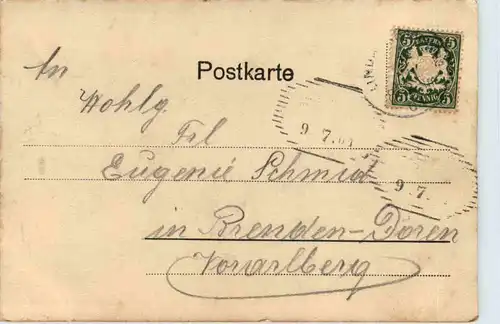 BAYERN
5 5
5 PFENNIG 5
Postkarte
An
Wohlg.
Frl
Eugenie Schmid
in Brenden-Doren
Vorarlberg
9 7.
9 7.